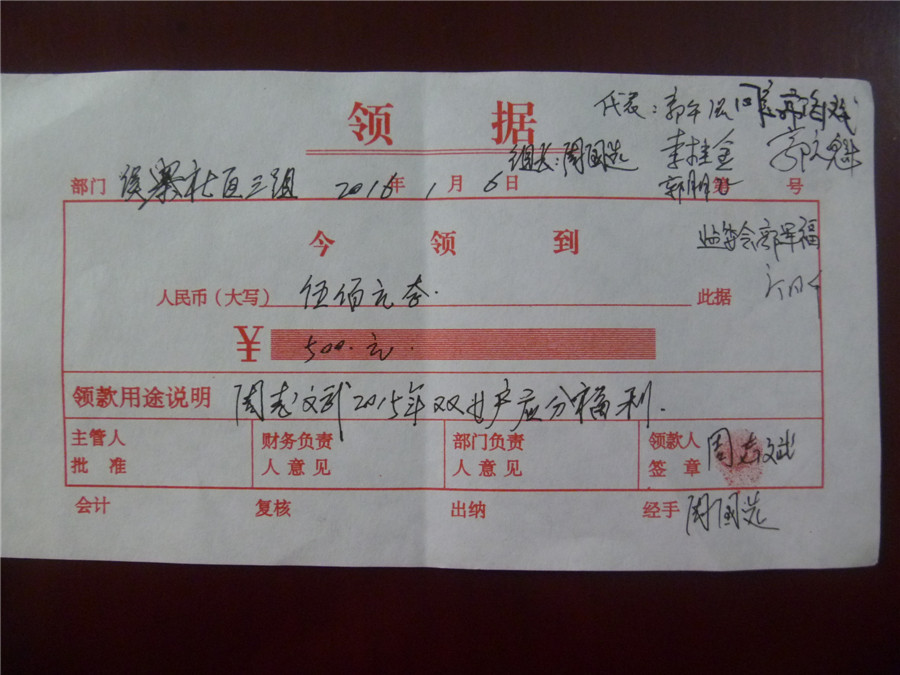 领 据
代表:
组长:周国选 李桂全 郭文魁
部门 侯寨社区三组 2016年1月6日 第 号
今领到
监委会郭军福
人民币(大写) 伍佰元整. 此据
¥ 500.元.
领款用途说明 周志文武2015年双女户应分福利.
主管人批准 财务负责人意见 部门负责人意见 领款人签章 周志斌
会计 复核 出纳 经手 周国选